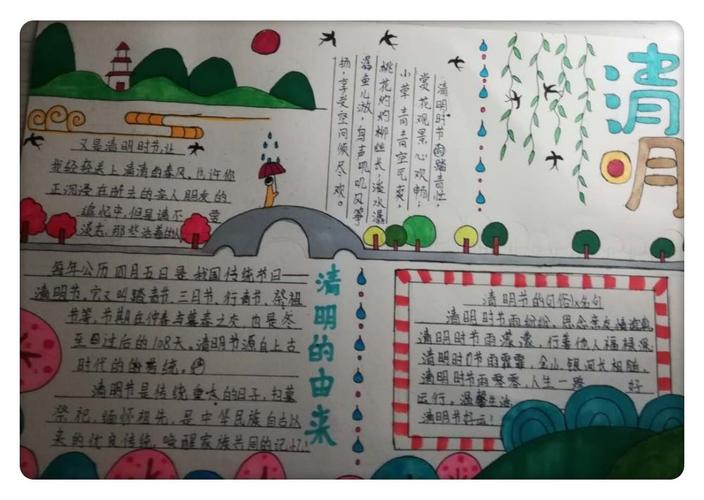 清明
又是清明时节让
我轻轻关上清清的春风,允许你
正沉浸在逝去的亲人朋友的
追忆中,但是请不
漫去,那些活着的人
清明时节雨踏青性,
赏花观景心欢畅。
小草青青空气爽,
桃花灼灼柳丝长。淡水潺
潺鱼儿游,鸟声叽叽风筝
扬,享受空间倾尽欢。
清明的由来
每年公历四月五日是我国传统节日——
清明节,它又叫踏青节、三月节、行青节、祭祖
节等,节期在仲春与暮春之交,也是冬
至日过后的108天。清明节源自上古
时代的传统。
清明节是传统重大的日子,扫墓
祭祀、缅怀祖先,是中华民族自古以
来的优良传统,唤醒家族共同的记忆,
清明节的习俗
清明时节雨纷纷,思念亲友情
清明时节雨濛濛,行善他人福根深
清明时节雨霏霏,金山银河长相随,
清明时节雨寒寒,人生一路 好
运行,温馨生活
清明节好运!